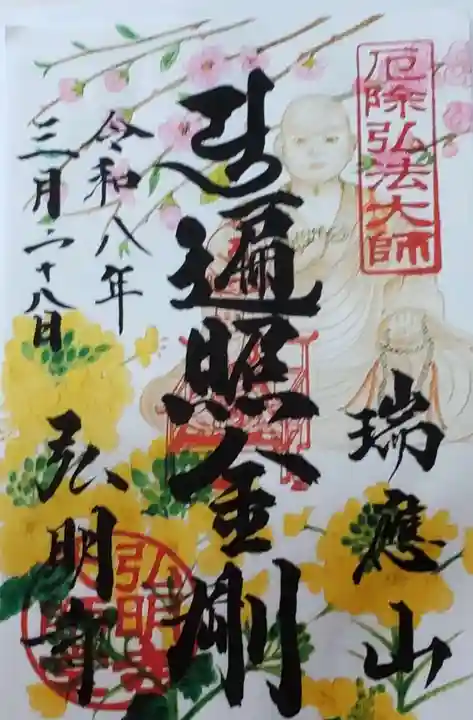 厄除弘法大師
瑞應山
南無遍照金剛
令和八年
三月二十八日
弘明寺
弘明